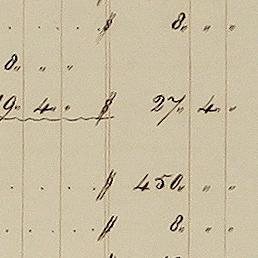 . . . . ſ 8 〃 〃 〃
8 〃 〃 〃
19 〃 4 〃 〃 ſ 27 〃 4 〃 〃
. . . . ſ 450 〃 〃 〃
. . . . ſ 8 〃 〃 〃